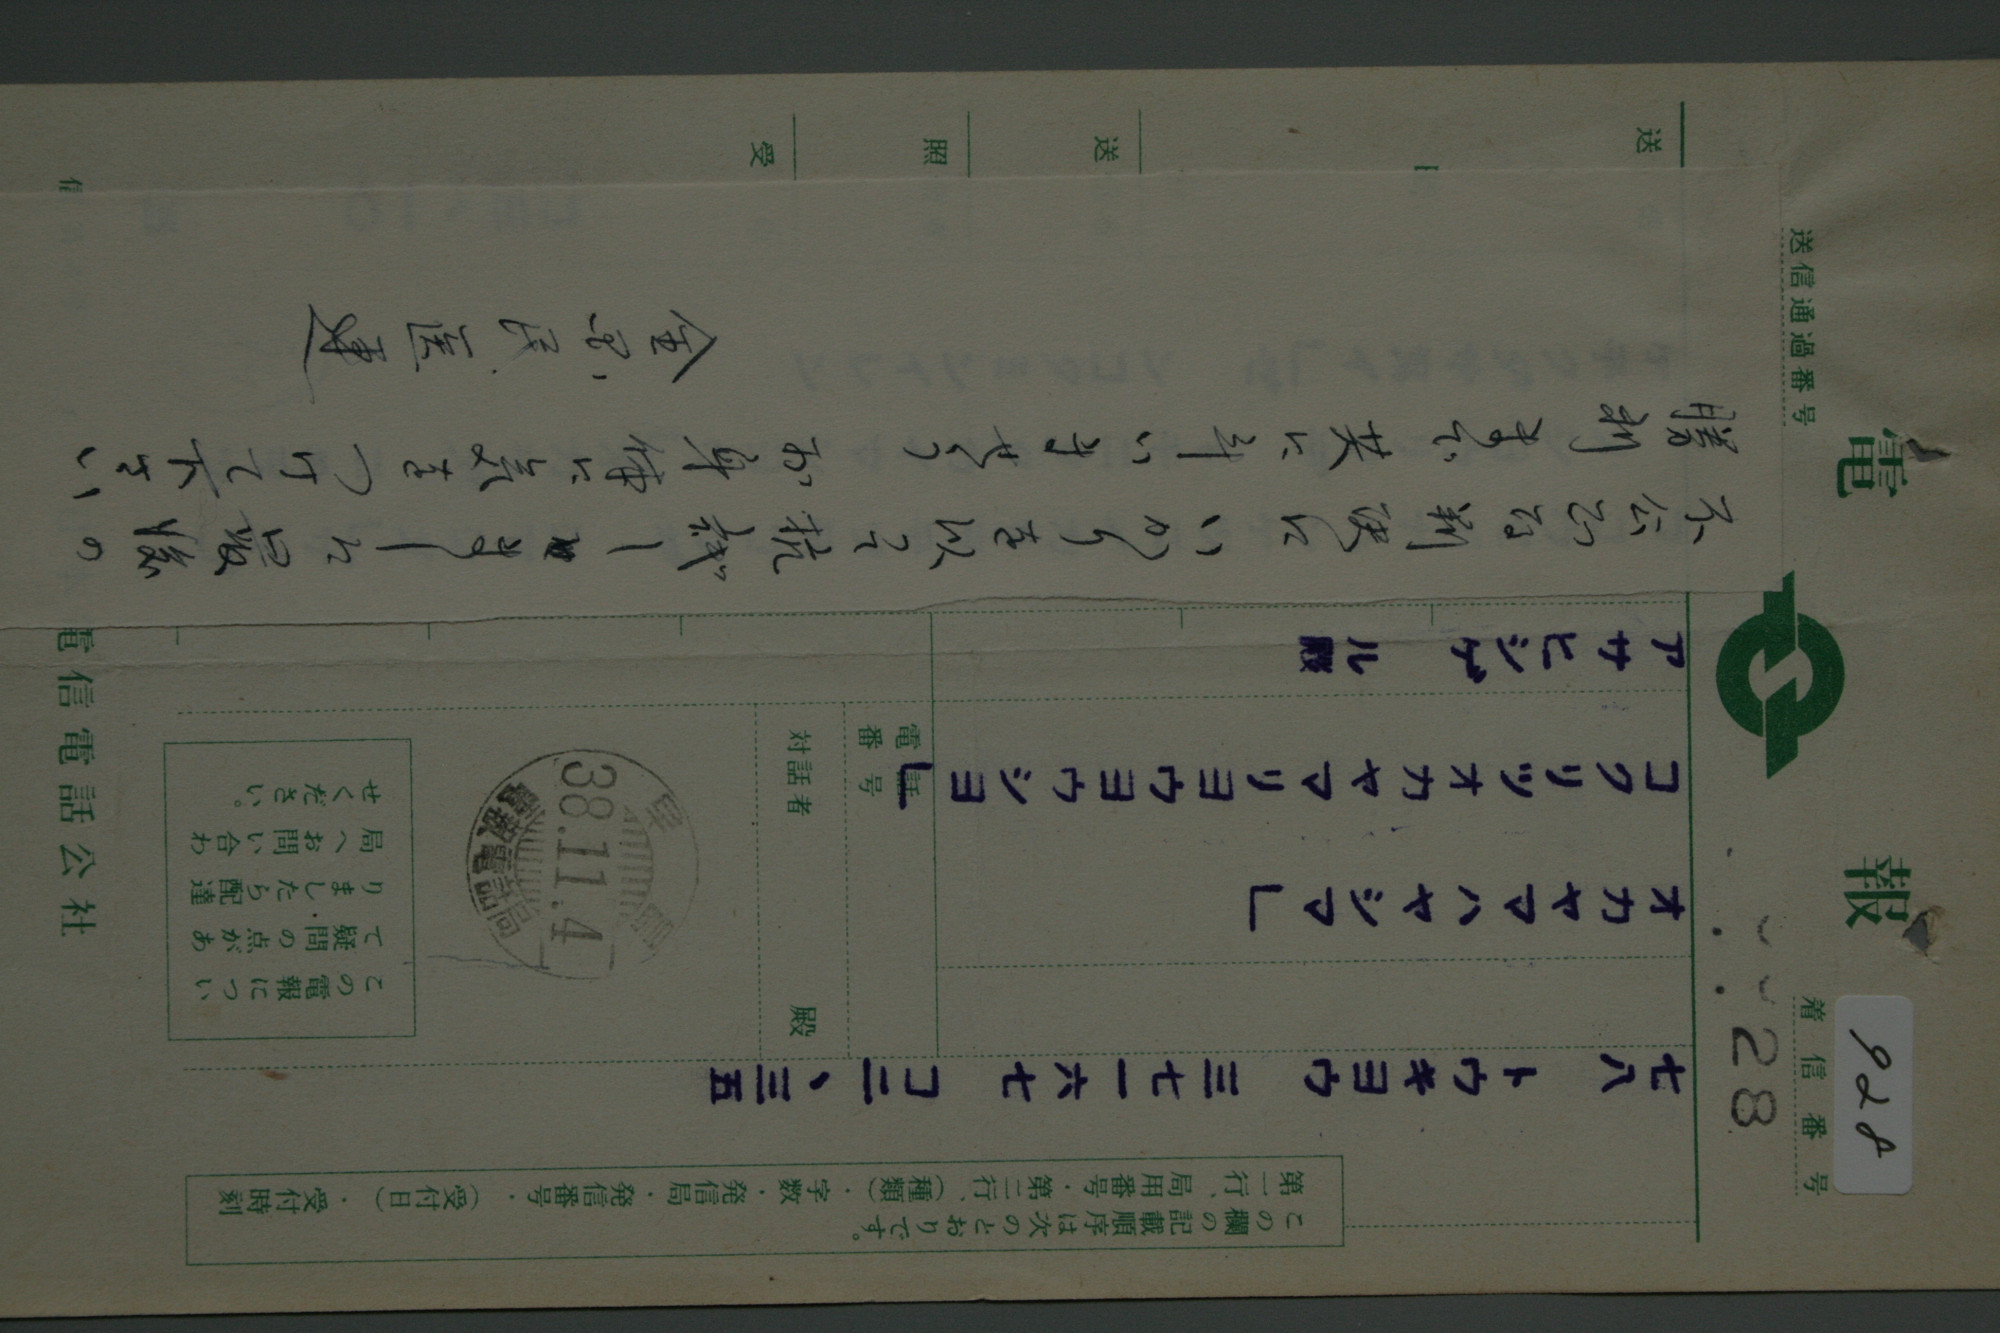 電報
送信通過番号
着信番号
928
28
この欄の記載順序は次のとおりです。
第一行、局用番号・第二行、(種類)・字数・発信局・発信番号・(受付日)・受付時刻
七八 トウキヨウ 三七一六七 コ二、三五
オカヤマハヤシマ」
コクリツオカヤマリヨウヨウシヨ」
アサヒシゲル殿
電話番号
対話者 殿
38.11.4
この電報につい
て疑問の点があ
りましたら配達
局へお問い合わ
せください。
電信電話公社
不公正な判決にいかりを以って抗議します 最後の
勝利まで共に斗いませう お身体に気をつけて下さい
全国民医連
送
送
照
受
信